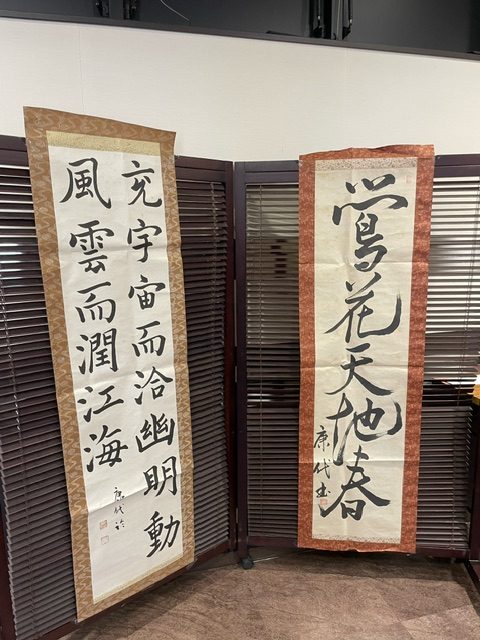 鴬花天地春
康代書
充宇宙而洽幽明動
風雲而潤江海
康代